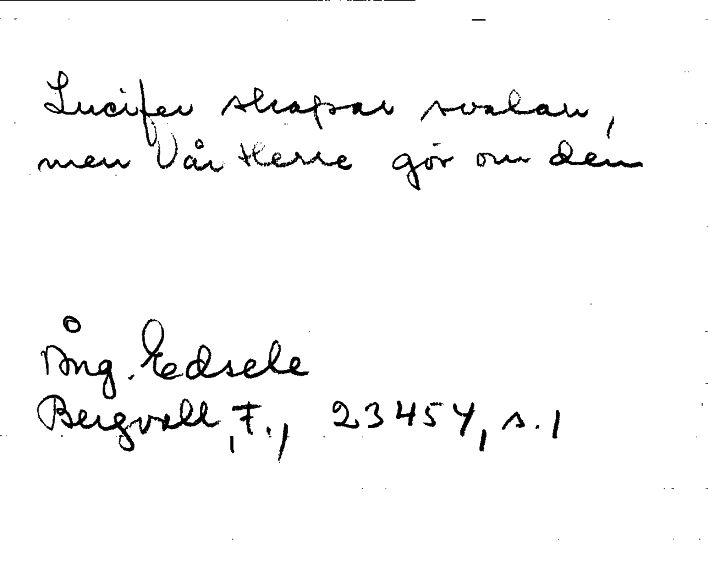 Lucifer skapar svalan,
men Vår Herre gör om den
Ång. Edsele
Bergvall, F., 23454, s. 1